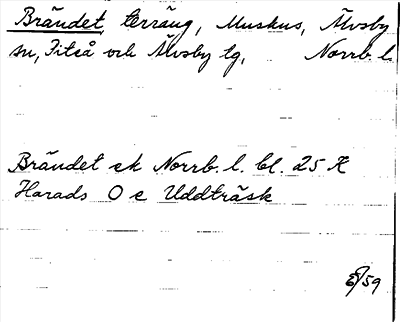 Brändet, terräng, Muskus, Älvsby
sn, Piteå och Älvsby tg, Norrb. l.
Brändet ek Norrb. l. bl. 25 K
Harads O e Uddträsk
/59